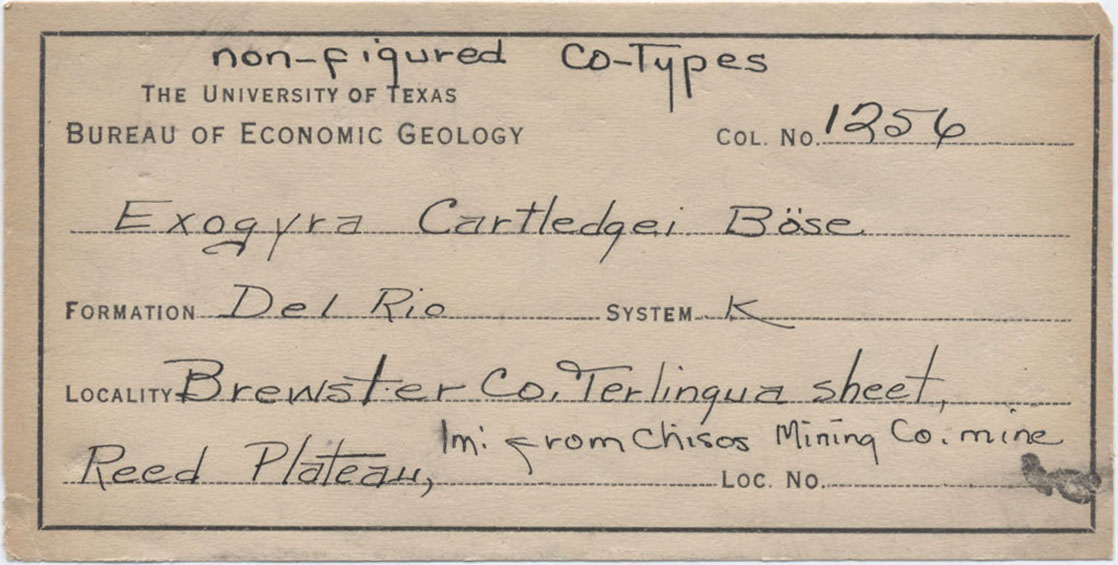 non-figured Co-Types
THE UNIVERSITY OF TEXAS
BUREAU OF ECONOMIC GEOLOGY
COL. NO. 1256
Exogyra Cartledgei Böse
FORMATION Del Rio SYSTEM K
LOCALITY Brewster Co. Terlingua sheet,
Reed Plateau, 1m: from Chisos Mining Co. mine
LOC. NO.